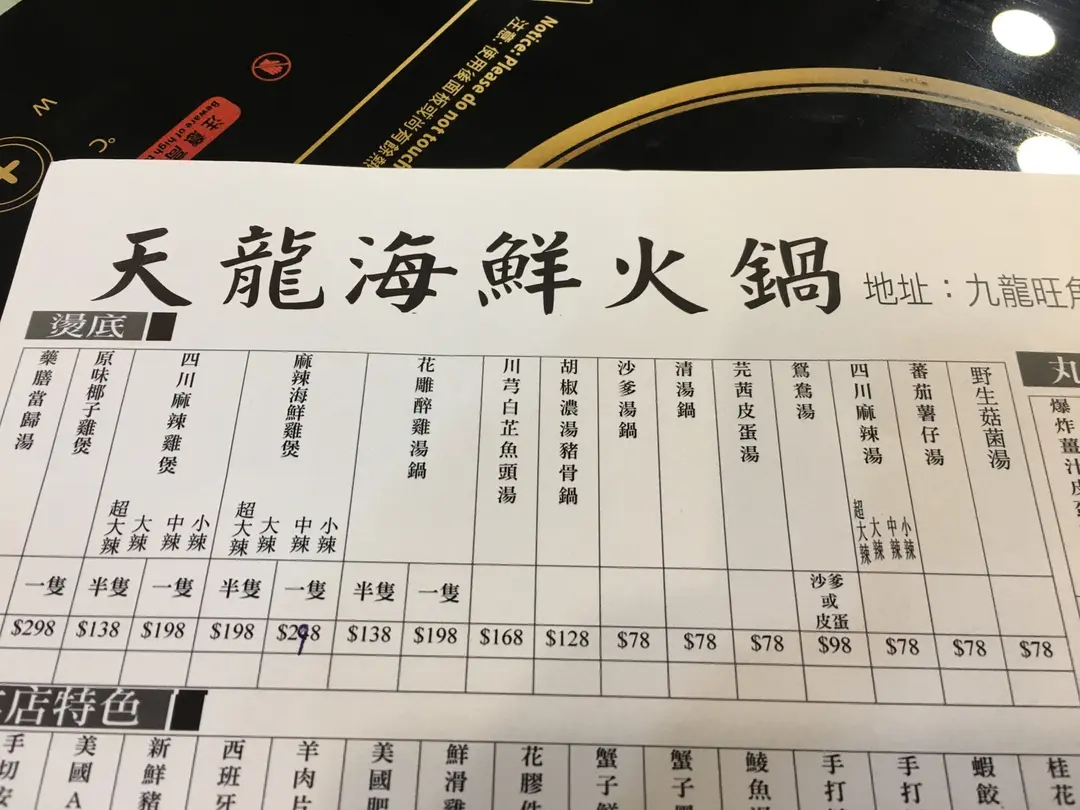 Notice: Please do not touch
注意：使用後面板或尚有餘
W
°C
注意高
Beware of high
天龍海鮮火鍋
地址：九龍旺角
燙底
野生菇菌湯
$78
蕃茄薯仔湯
$78
四川麻辣湯
小辣
中辣
大辣
超大辣
$78
鴛鴦湯
沙爹
或
皮蛋
$98
芫茜皮蛋湯
$78
清湯鍋
$78
沙爹湯鍋
$78
胡椒濃湯豬骨鍋
$128
川芎白芷魚頭湯
$168
花雕醉雞湯鍋
一隻
$198
半隻
$138
麻辣海鮮雞煲
小辣
中辣
大辣
超大辣
一隻
半隻
$198
四川麻辣雞煲
小辣
中辣
大辣
超大辣
一隻
$198
半隻
$138
原味椰子雞煲
一隻
$298
藥膳當歸湯
丸
爆炸薑汁皮蛋
本店特色
桂花
蝦餃
手打
手打
鯪魚
蟹子
蟹子
花膠
鮮滑雞
美國肥
羊肉片
西班牙
新鮮豬
美國A
手切